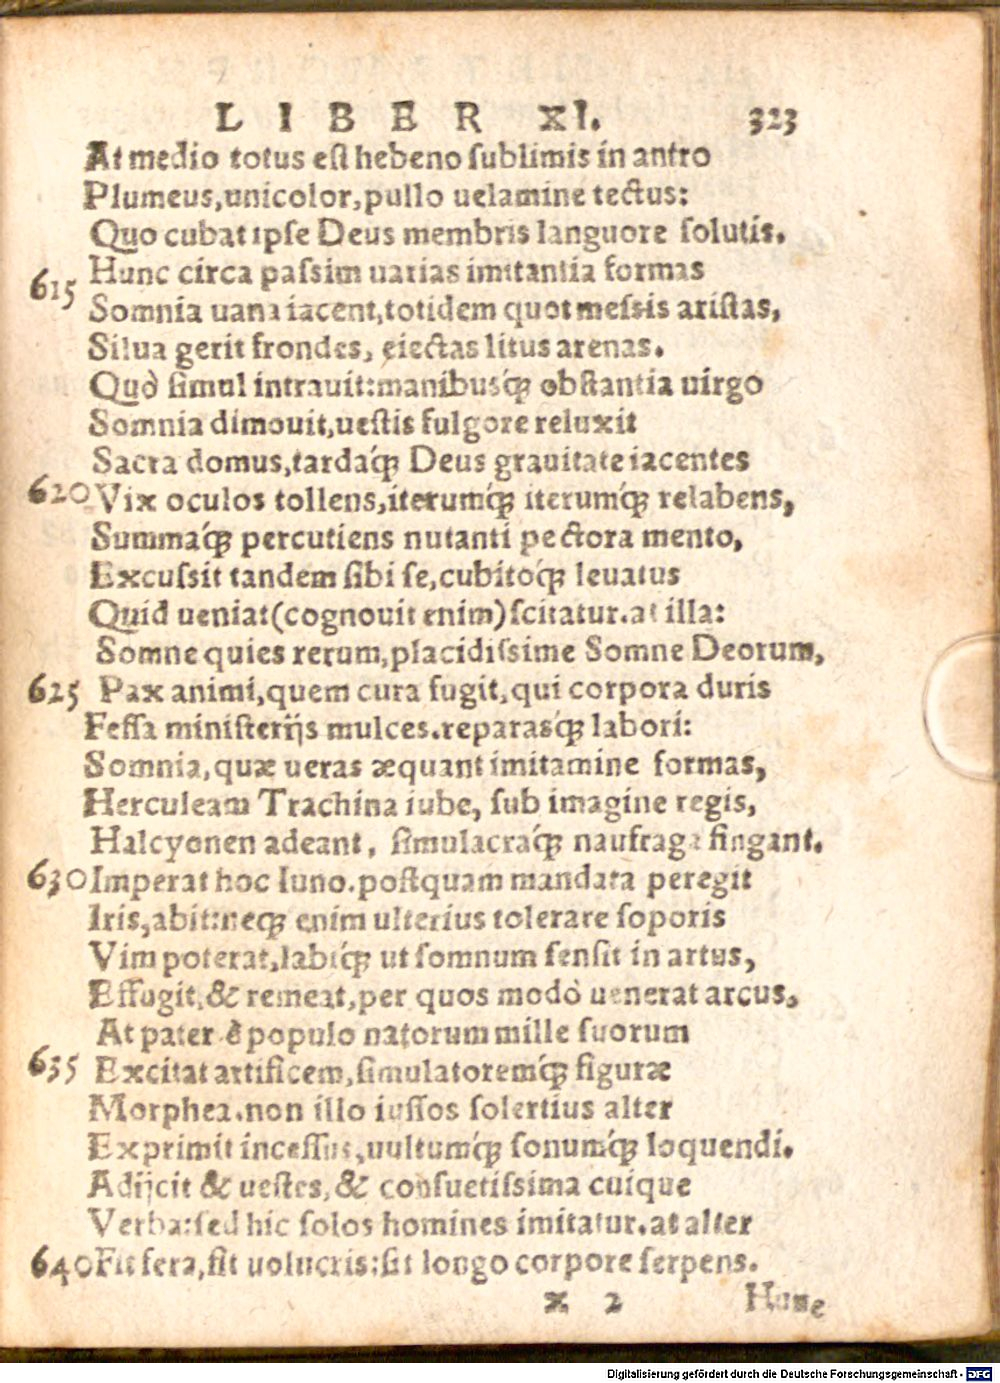 LIBER XI. 323
At medio totus est hebeno sublimis in antro
Plumeus,unicolor,pullo uelamine tectus:
Quo cubat ipse Deus membris languore solutis.
615 Hunc circa passim uarias imitantia formas
Somnia uana iacent,totidem quot messis aristas,
Silua gerit frondes, eiectas litus arenas.
Quò simul intrauit:manibusq́ obstantia uirgo
Somnia dimouit,uestis fulgore reluxit
Sacra domus,tardaq́ Deus grauitate iacentes
620 Vix oculos tollens,iterumq́ iterumq́ relabens,
Summaq́ percutiens nutanti pectora mento,
Excussit tandem sibi se,cubitoq́ leuatus
Quid ueniat(cognouit enim)scitatur.at illa:
Somne quies rerum,placidissime Somne Deorum,
625 Pax animi,quem cura fugit,qui corpora duris
Fessa ministerijs mulces.reparasq́ labori:
Somnia,quæ ueras æquant imitamine formas,
Herculeam Trachina iube, sub imagine regis,
Halcyonen adeant, simulacraq́ naufraga fingant.
630 Imperat hoc Iuno.postquam mandata peregit
Iris,abit:neq́ enim ulterius tolerare soporis
Vim poterat,labiq́ ut somnum sensit in artus,
Effugit,& remeat,per quos modò uenerat arcus.
At pater è populo natorum mille suorum
635 Excitat artificem,simulatoremq́ figuræ
Morphea.non illo iussos solertius alter
Exprimit incessus,uultumq́ sonumq́ loquendi.
Adijcit & uestes,& consuetissima cuique
Verba:sed hic solos homines imitatur.at alter
640 Fit fera,fit uolucris:fit longo corpore serpens.
x 2 Hunc
Digitalisierung gefördert durch die Deutsche Forschungsgemeinschaft - DFG